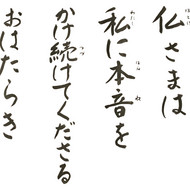 仏さまは
私に本音を
かけ続けてくださる
おはたらき